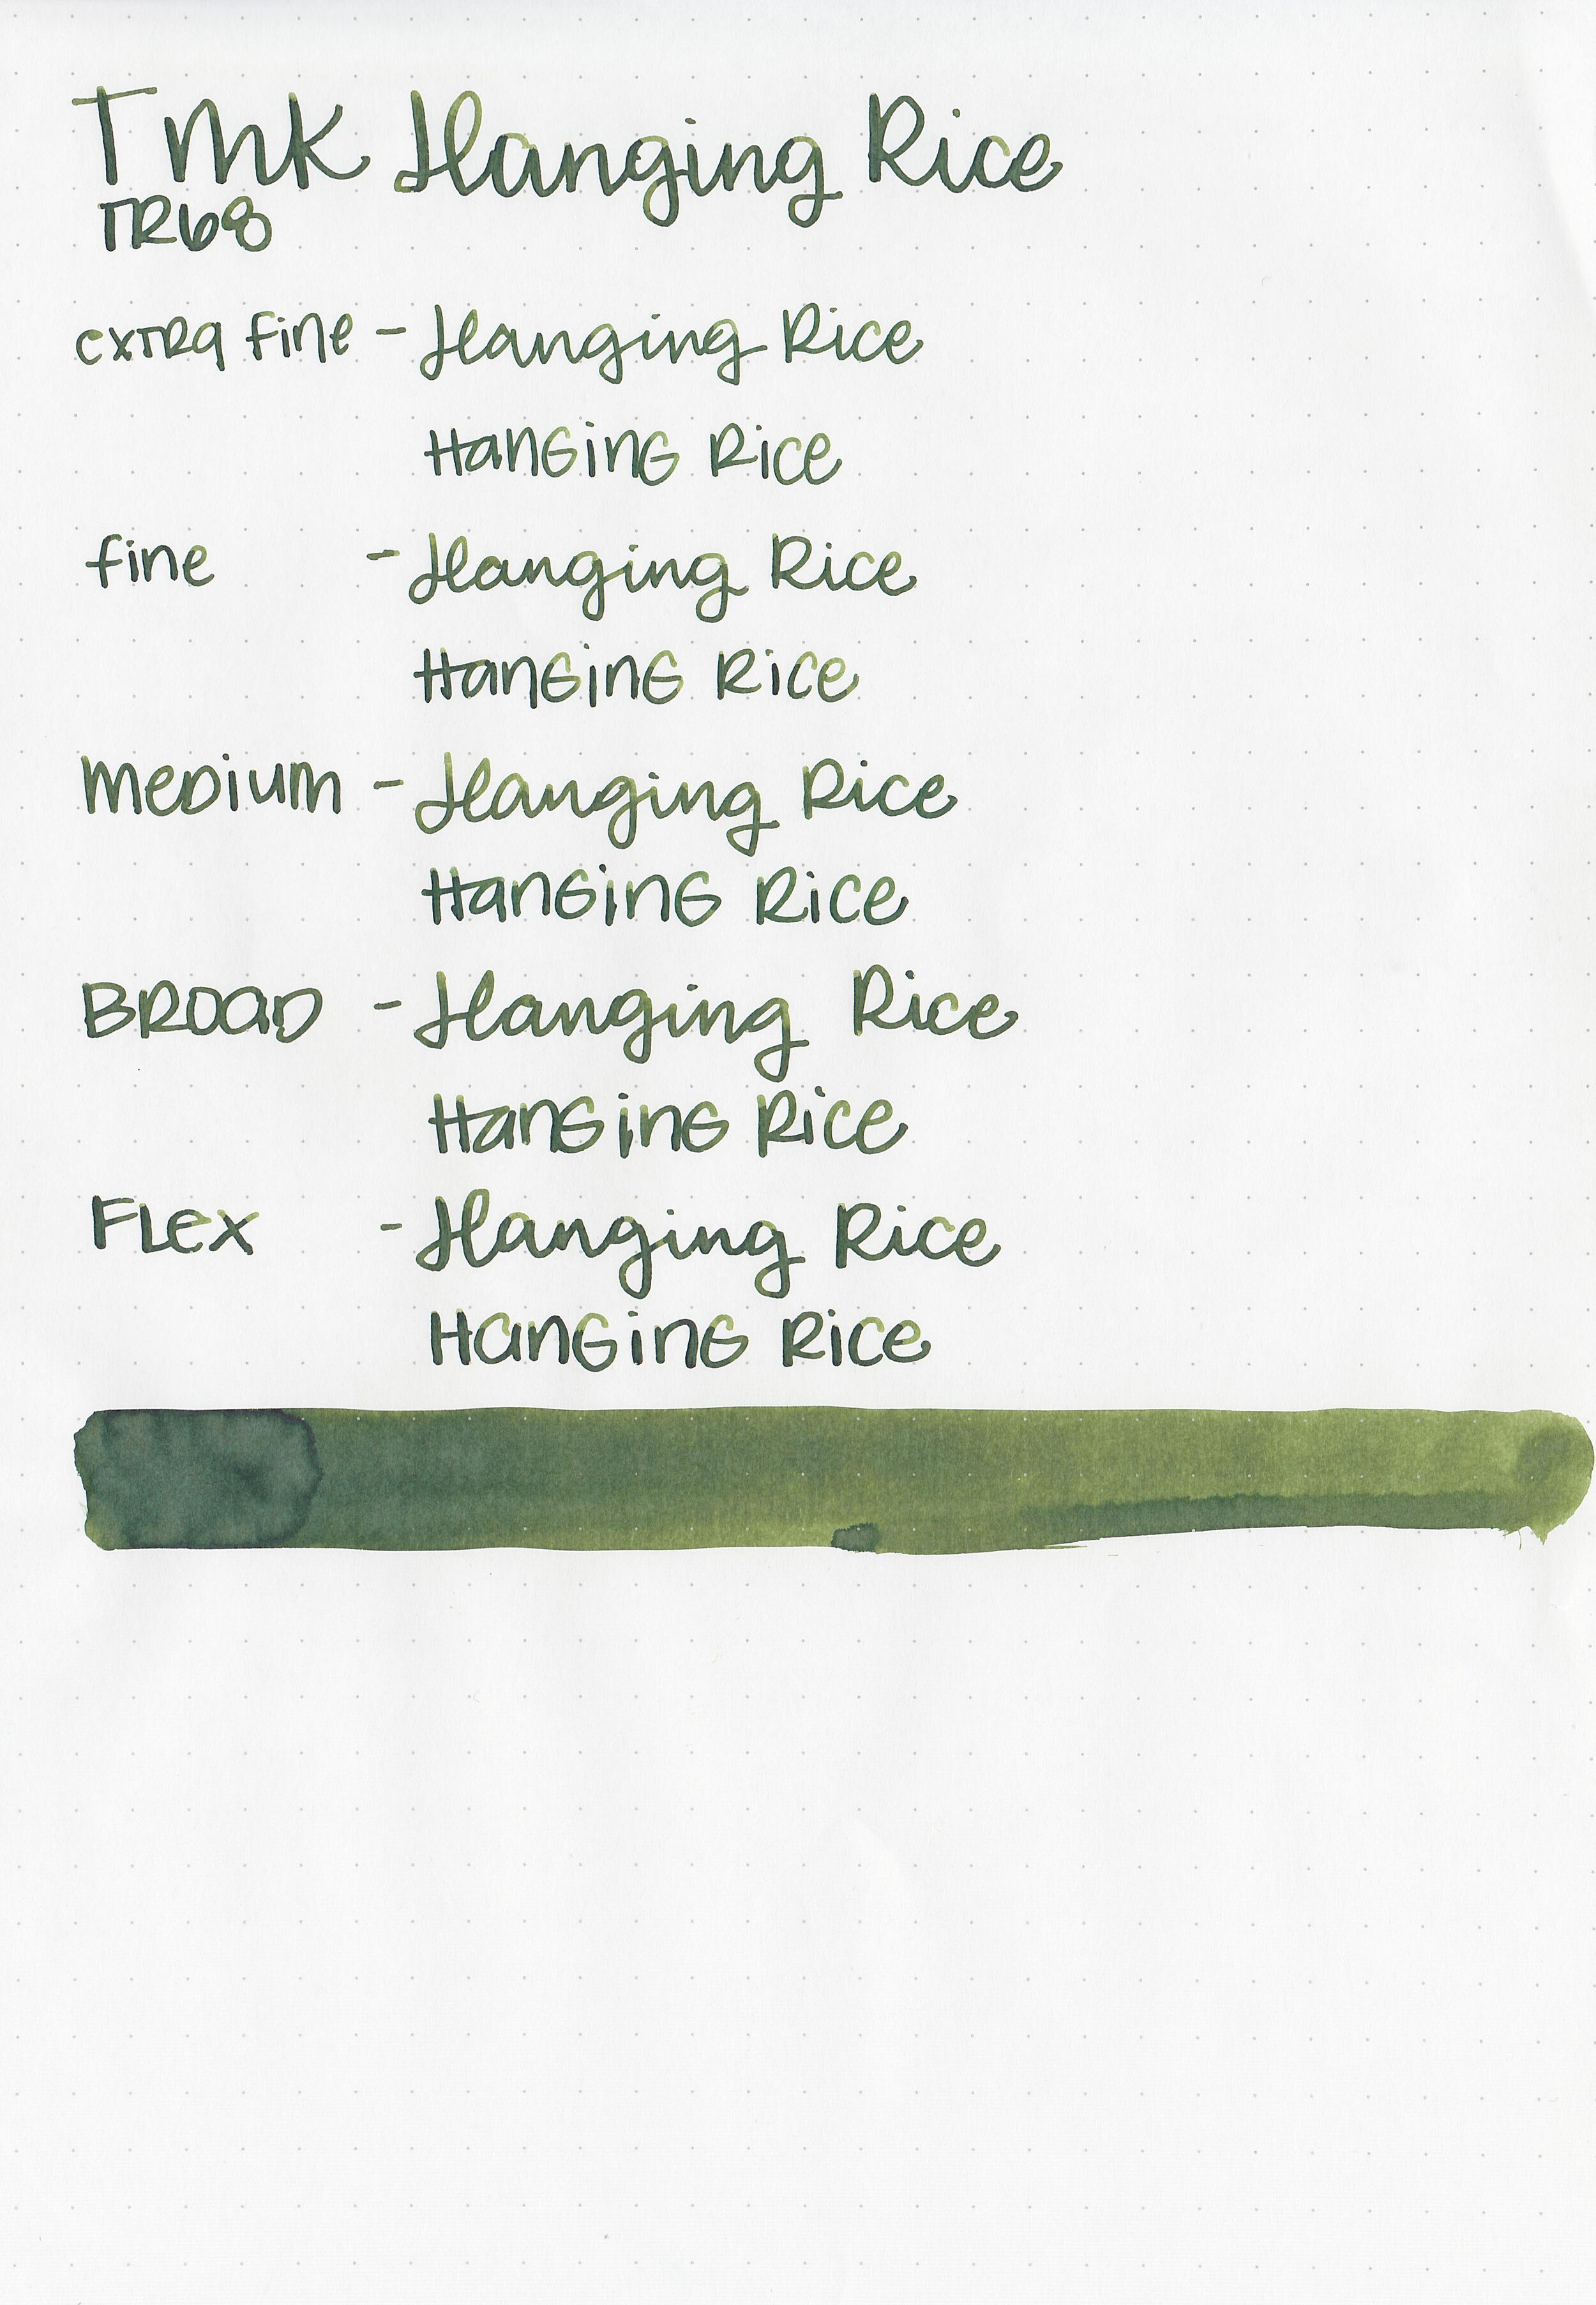 TMK Hanging Rice
TR68
extra fine - Hanging Rice
Hanging Rice
fine - Hanging Rice
Hanging Rice
Medium - Hanging Rice
Hanging Rice
Broad - Hanging Rice
Hanging Rice
Flex - Hanging Rice
Hanging Rice